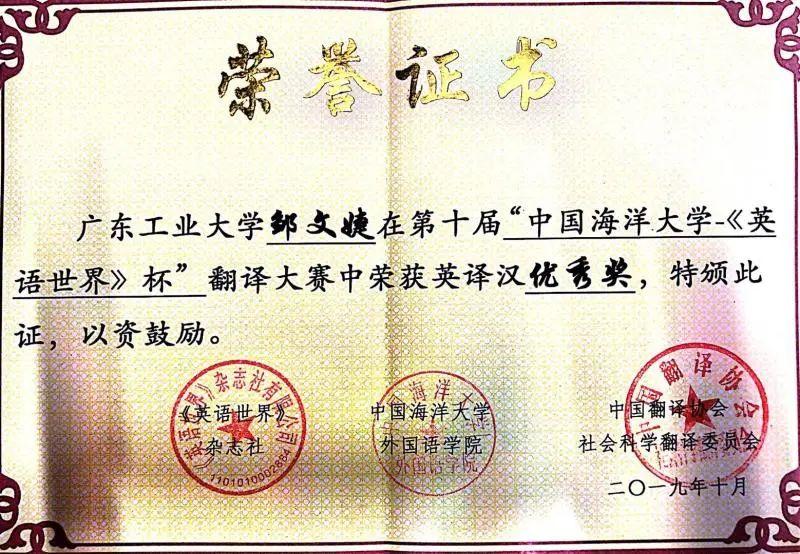 荣誉证书
广东工业大学邹文婕在第十届“中国海洋大学-《英
语世界》杯”翻译大赛中荣获英译汉优秀奖，特颁此
证，以资鼓励。
《英语世界》杂志社有限公司
1101010002664
《英语世界》
杂志社
中国海洋大学
外国语学院
中国海洋大学
外国语学院
中国翻译协会
中国翻译协会
社会科学翻译委员会
二〇一九年十月